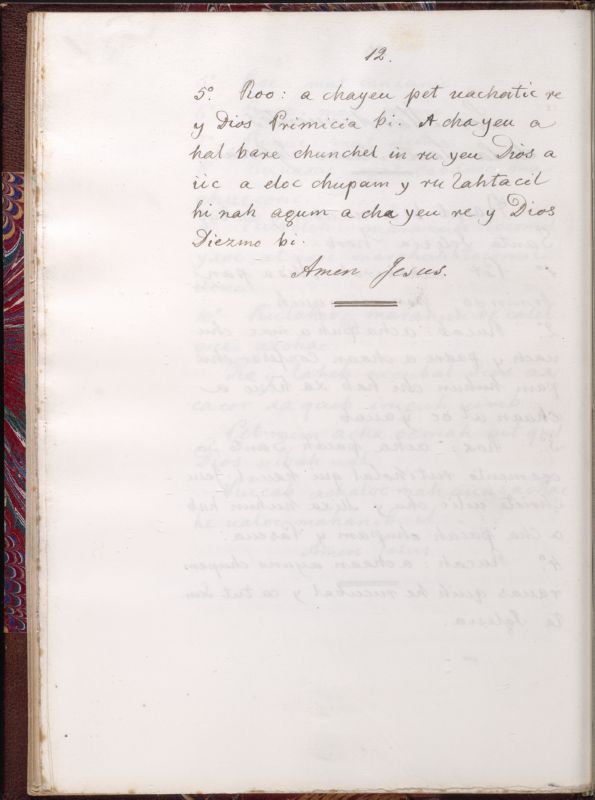 12.
5º Roo: a chayeu pet uachoitic re
y Dios Primicia bi. A chayeu a
hal bare chunchel in ru yeu Dios a
iic a eloc chupam y ru Zahtacil
hi nah aqum a cha yeu re y Dios
Diezmo bi.
Amen Jesus.